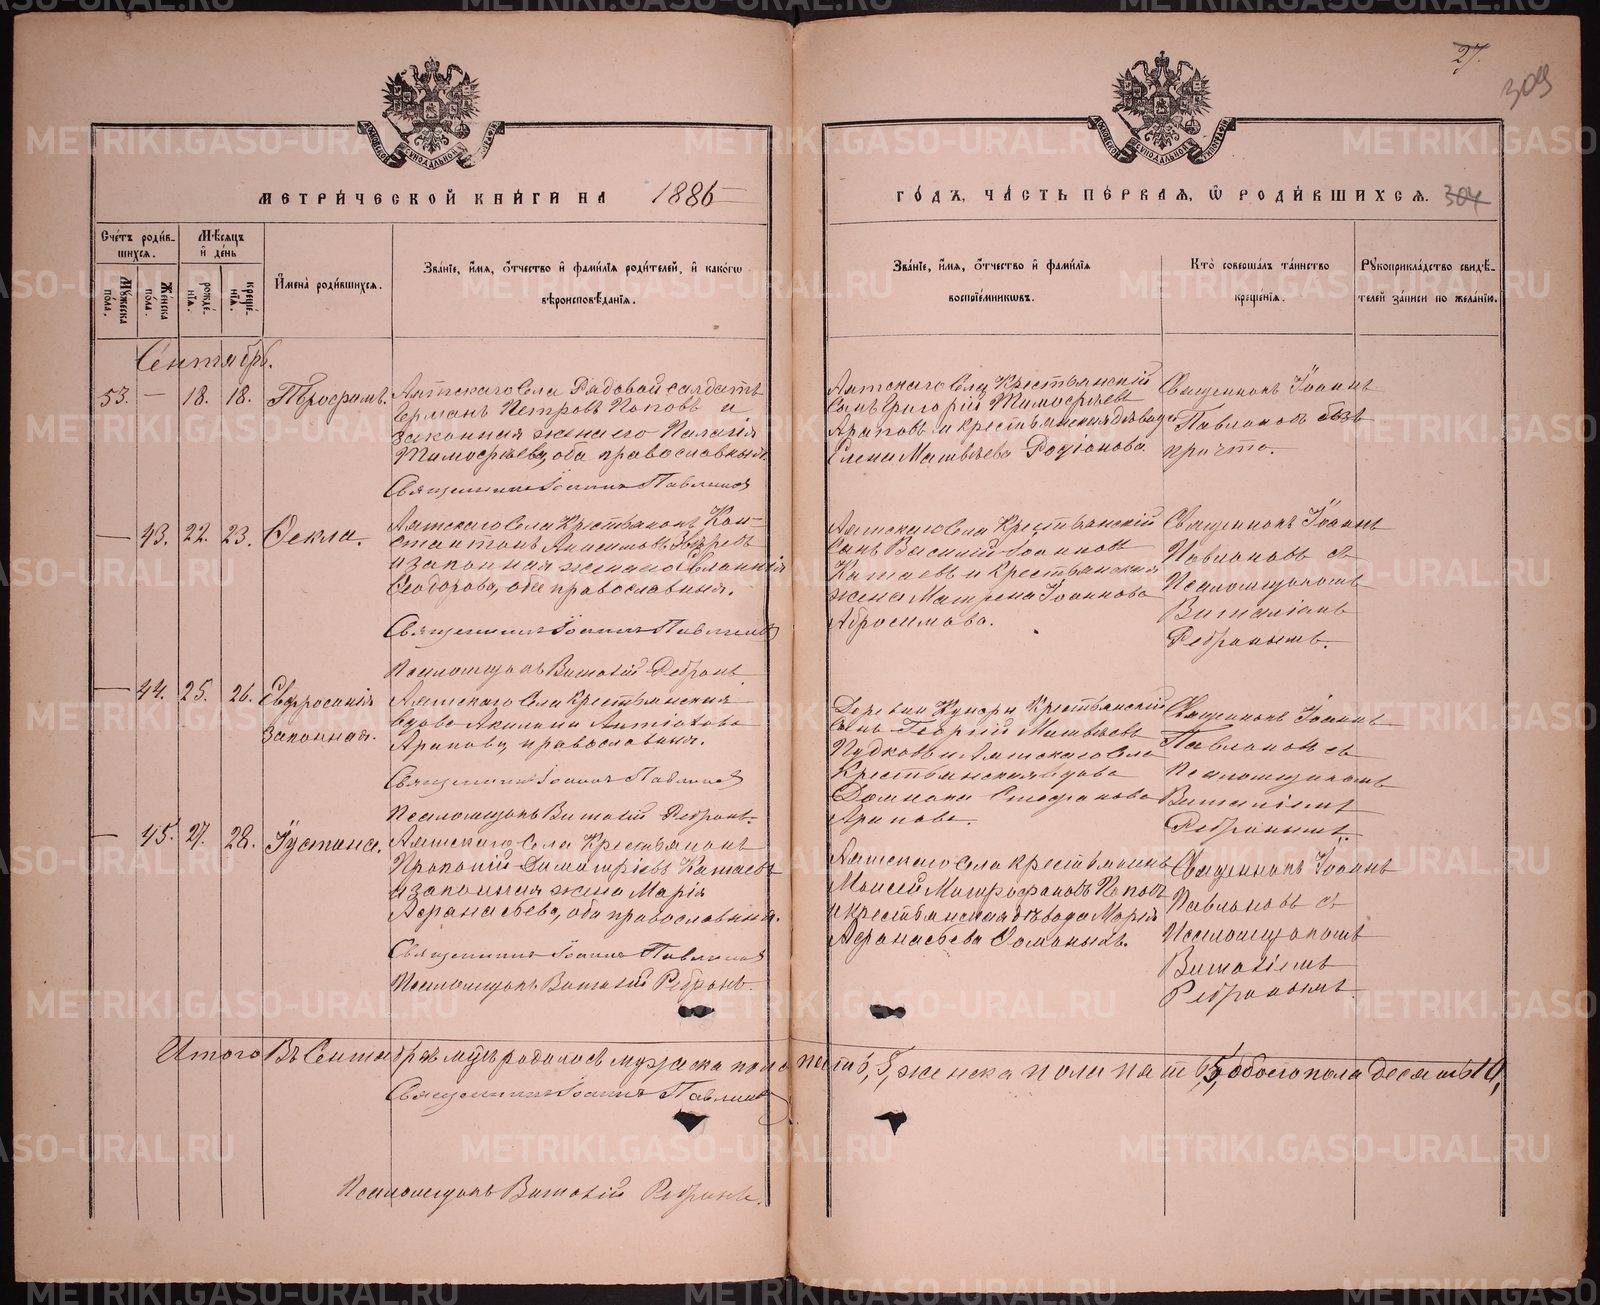 27.
309
МЕТРИ́ЧЕСКОЙ КНИ́ГИ НА 1886
ГО́ДЪ, ЧА́СТЬ ПЕ́РВАЯ, Ѽ РОДИ́ВШИХСЯ. 304
Сче́тъ роди́в-
шихся.
Мꙋ́жеска
по́ла.
Же́нска
по́ла.
Мѣ́сяцъ
и҆ де́нь
рожде́-
нїя.
креще́-
нїя.
И҆мена̀ роди́вшихся.
Зва́нїе, и҆́мя, ѻ҆́тчество и҆ фами́лїя роди́телей, и҆ како́гѡ
вѣроисповѣ́данїя.
Зва́нїе, и҆́мя, ѻ҆́тчество и҆ фами́лїя
воспрїе́мникѡвъ.
Кто̀ соверша́лъ та́инство
креще́нїя.
Рꙋкоприкла́дство свидѣ́-
телей за́писи по жела́нїю.
Сентябрь.
53. — 18. 18.
Аятскаго Села Рядовой солдатъ
Германъ Петровъ Поповъ и
законная жена его Палагія
Тимофѣева, оба православныя.
Священникъ Іоаннъ Павлиновъ
Аятскаго Села Крестьянскій
Сынъ Григорій Тимофѣевъ
Араповъ и крестьянская дѣвица
Елена Матвѣева Родіонова.
Священникъ Іоаннъ
Павлиновъ безъ
причта.
— 43. 22. 23. Ѳекла.
Аятскаго Села Крестьянинъ Кон-
стантинъ Анисимовъ Звѣревъ
и законная жена его Евлампія
Ѳеодорова, оба православныя.
Священникъ Іоаннъ Павлиновъ
Псаломщикъ Виталій Ребринъ.
Аятскаго Села Крестьянскій
Сынъ Василій Іоанновъ
Катаевъ и Крестьянская
жена Матрена Іоаннова
Абросимова.
Священникъ Іоаннъ
Павлиновъ съ
Псаломщикомъ
Виталіемъ
Ребринымъ.
— 44. 25. 26. Евфросинія
законная.
Аятскаго Села Крестьянская
вдова Акилина Антіохова
Арапова, православныя.
Священникъ Іоаннъ Павлиновъ
Псаломщикъ Виталій Ребринъ.
Деревни Кунары Крестьянскій
Сынъ Георгій Матвѣевъ
и Аятскаго Села
Крестьянская вдова
Домника Стефанова
Арапова.
Священникъ Іоаннъ
Павлиновъ съ
Псаломщикомъ
Виталіемъ
Ребринымъ.
— 45. 27. 28. Іустина.
Аятскаго Села Крестьянинъ
Прокопій Димитріевъ Катаевъ
и законная жена Марія
Афанасьева, оба православныя.
Священникъ Іоаннъ Павлиновъ
Псаломщикъ Виталій Ребринъ.
Аятскаго Села крестьянинъ
Моисей Митрофановъ Поповъ
и крестьянская дѣвица Марія
Афанасьева
Священникъ Іоаннъ
Павлиновъ съ
Псаломщикомъ
Виталіемъ
Ребринымъ.
Итого Въ Сентябрѣ мцѣ родилось мужска пола пять 5, женска пола пять 5, обоего пола десять 10,
Священникъ Іоаннъ Павлиновъ
Псаломщикъ Виталій Ребринъ.